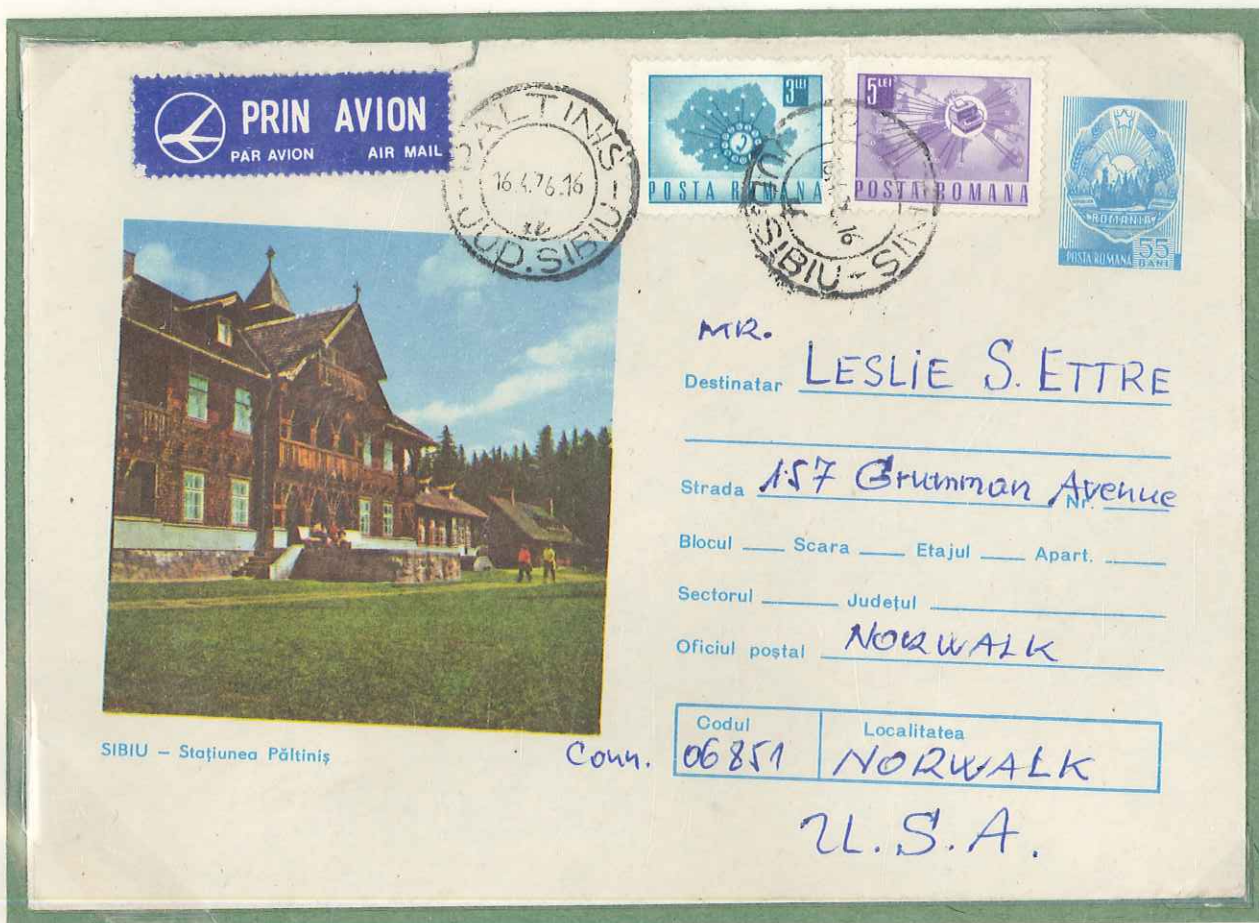 PRIN AVION
PAR AVION AIR MAIL
PALTINIS
16.4.76.16
JUD. SIBIU
3 LEI
POSTA ROMANA
5 LEI
POSTA ROMANA
SIBIU
ROMANIA
POSTA ROMANA 55 BANI
MR.
Destinatar LESLIE S. ETTRE
Strada 157 Grumman Avenue
Nr.
Blocul Scara Etajul Apart.
Sectorul Județul
Oficiul poștal NORWALK
Codul Localitatea
Conn. 06851 NORWALK
U.S.A.
SIBIU – Stațiunea Păltiniș